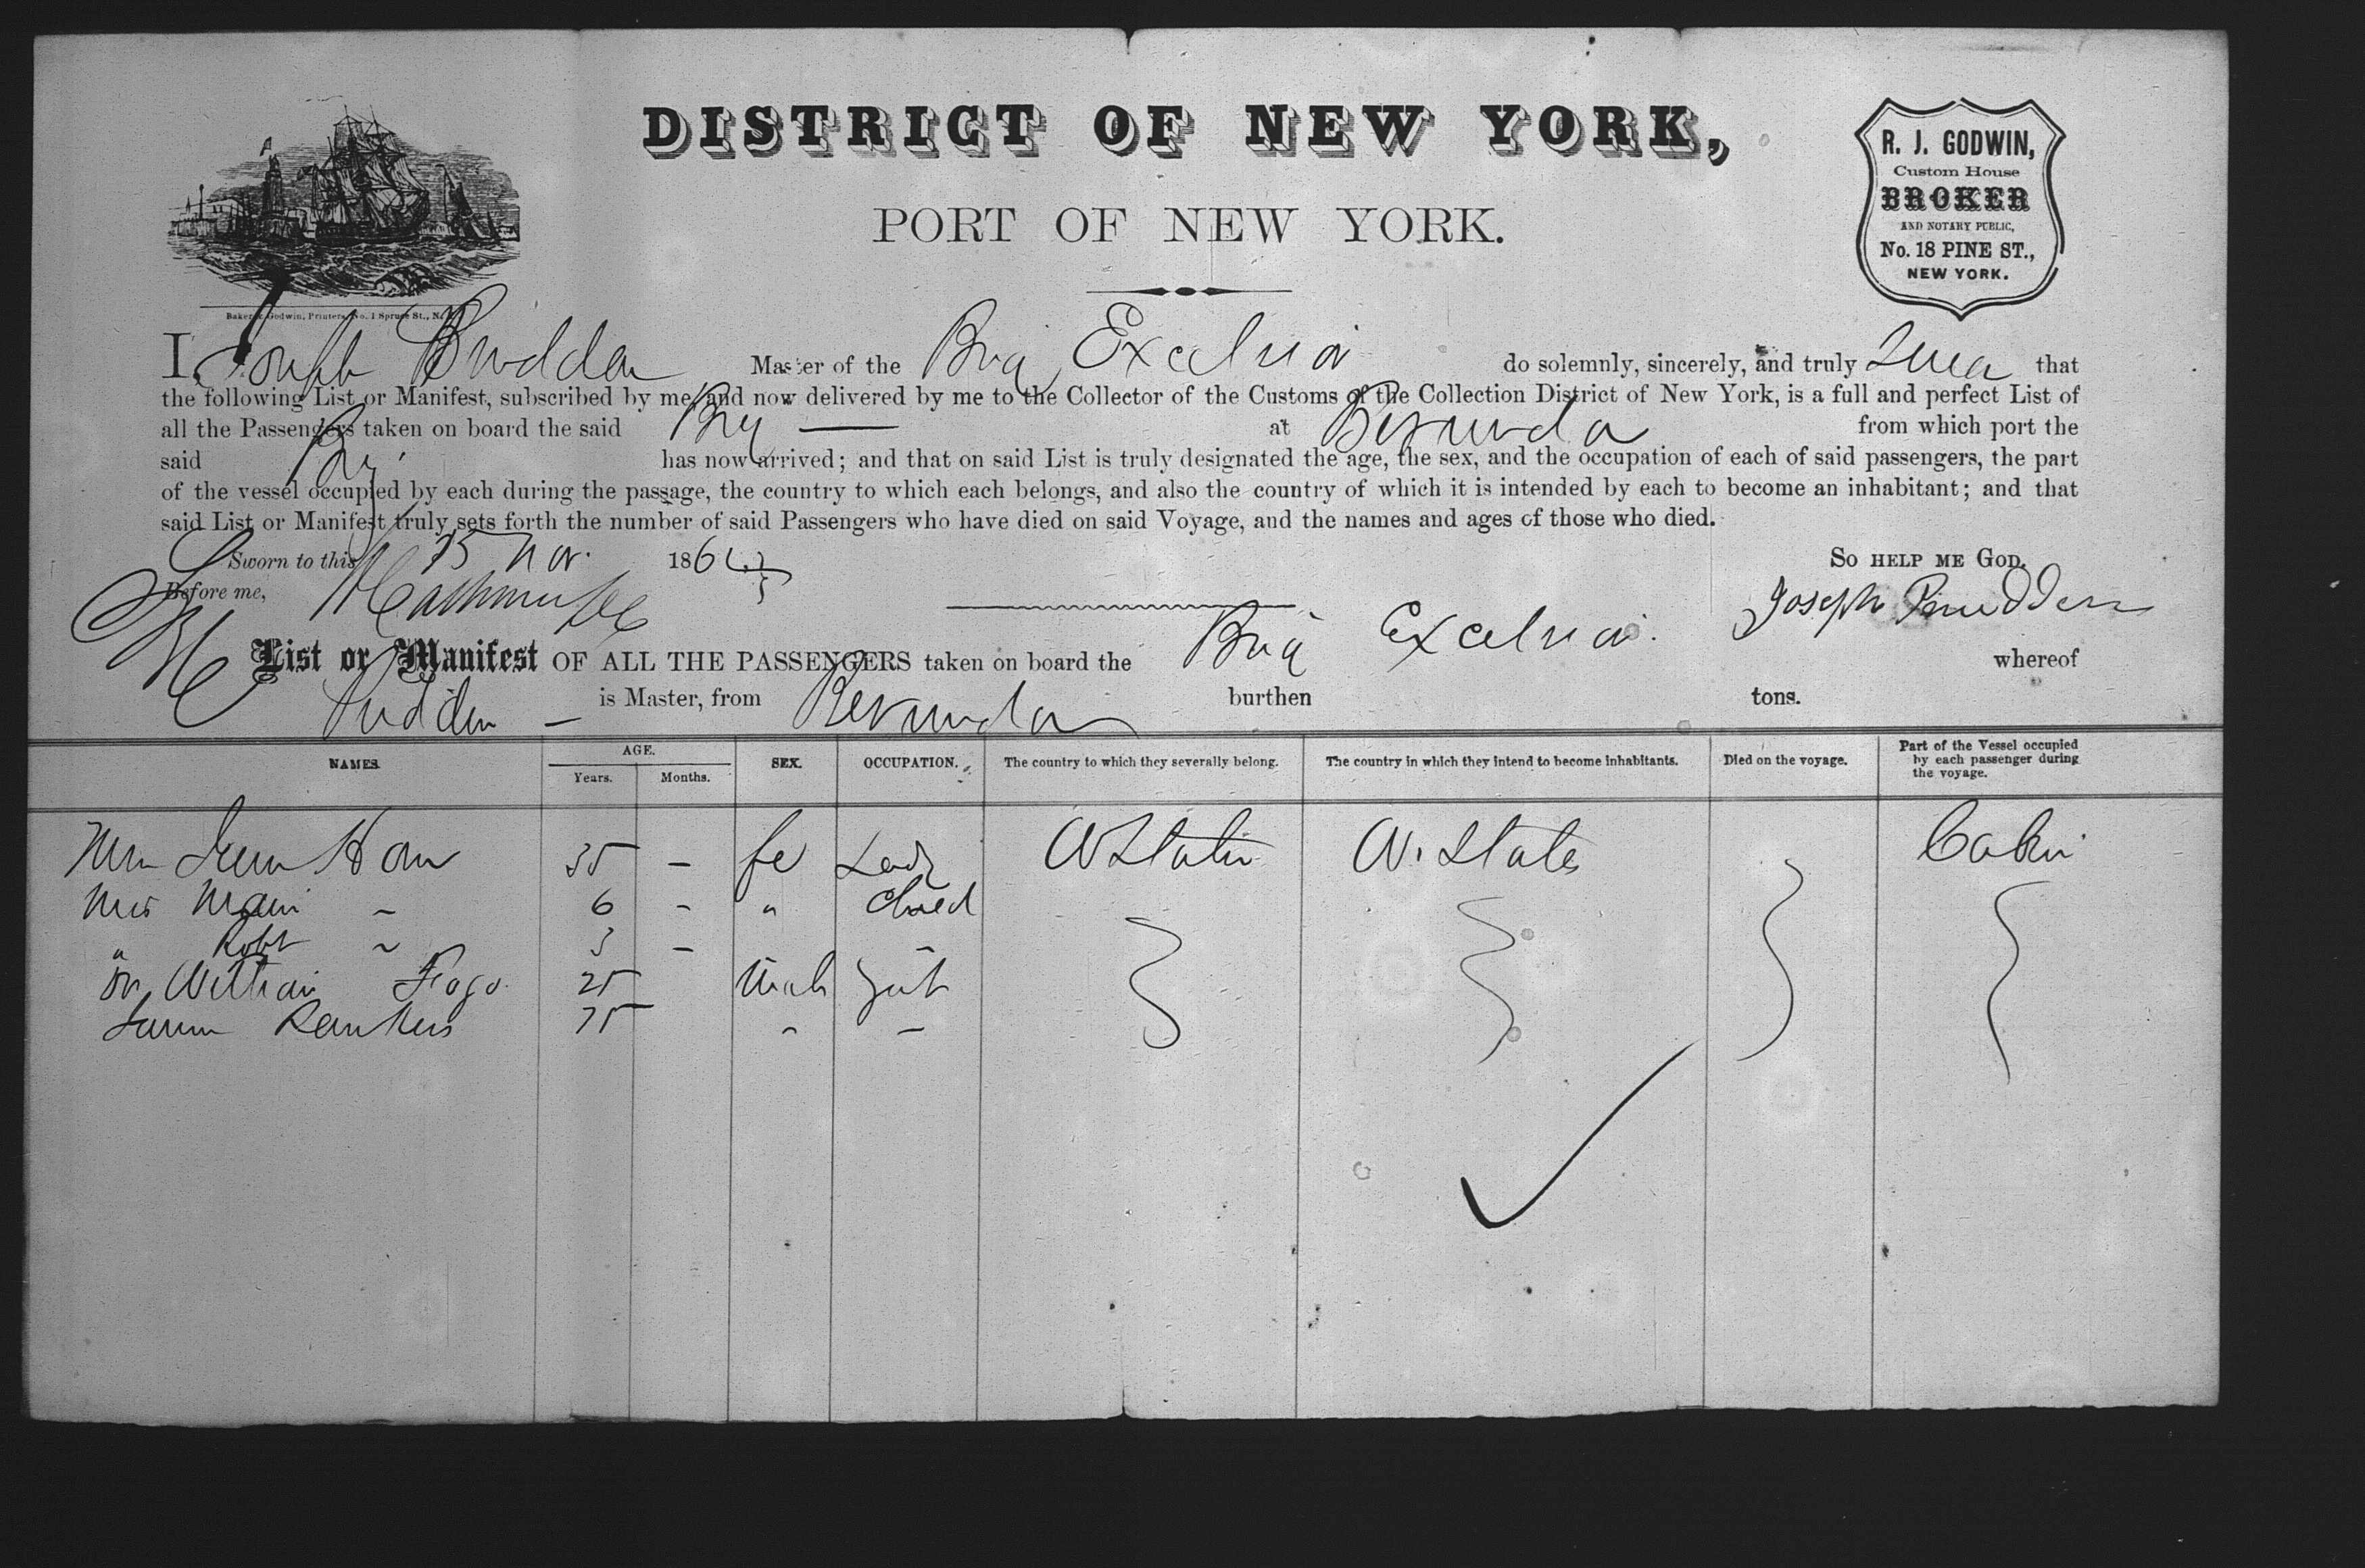 DISTRICT OF NEW YORK,
PORT OF NEW YORK.
R. J. GODWIN,
Custom House
BROKER
AND NOTARY PUBLIC,
No. 18 PINE ST.,
NEW YORK.
Baker & Godwin, Printers, No. 1 Spruce St., N. Y.
I, Joseph Master of the Brig Excelsior do solemnly, sincerely, and truly Swear that
the following List or Manifest, subscribed by me, and now delivered by me to the Collector of the Customs of the Collection District of New York, is a full and perfect List of
all the Passengers taken on board the said Brig at Bermuda from which port the
said Brig has now arrived; and that on said List is truly designated the age, the sex, and the occupation of each of said passengers, the part
of the vessel occupied by each during the passage, the country to which each belongs, and also the country of which it is intended by each to become an inhabitant; and that
said List or Manifest truly sets forth the number of said Passengers who have died on said Voyage, and the names and ages of those who died.
Sworn to this 15 Nov. 186 So HELP ME GOD.
Before me, Joseph Prudden
List or Manifest OF ALL THE PASSENGERS taken on board the Brig Excelsior whereof
is Master, from Bermuda burthen tons.
NAMES AGE. SEX. OCCUPATION. The country to which they severally belong. The country in which they intend to become inhabitants. Died on the voyage. Part of the Vessel occupied by each passenger during the voyage.
Years. Months.
35 - fe Lady U States U. States Cabin
6 - " Child
" Robt ~ 3 - -
William 25 Male
75 - -